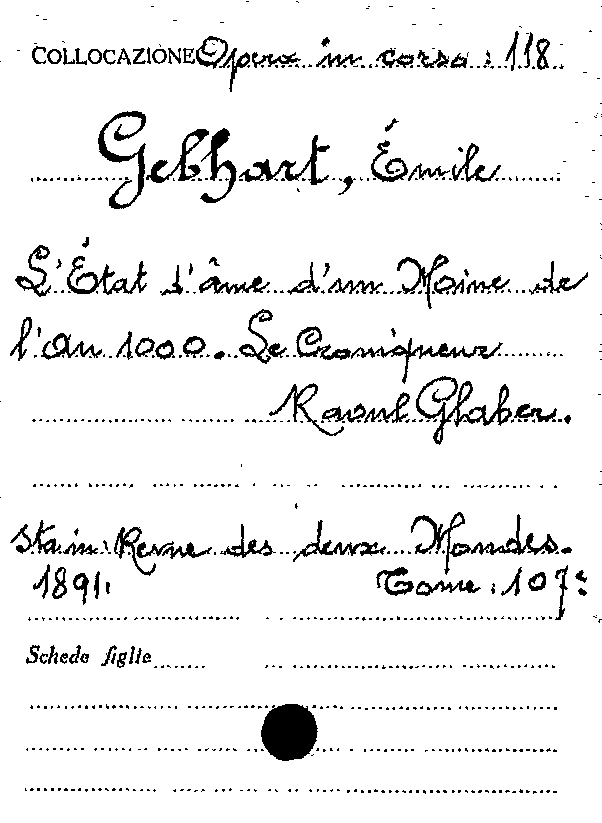 COLLOCAZIONE Opera in corso : 118
Gebhart, Émile
L'État d'âme d'un Moine de
l'an 1000. Le Croniqueur
Raoul Glaber.
Sta in: Revue des deux Mondes.
1891. Tome : 107e
Schede figlie